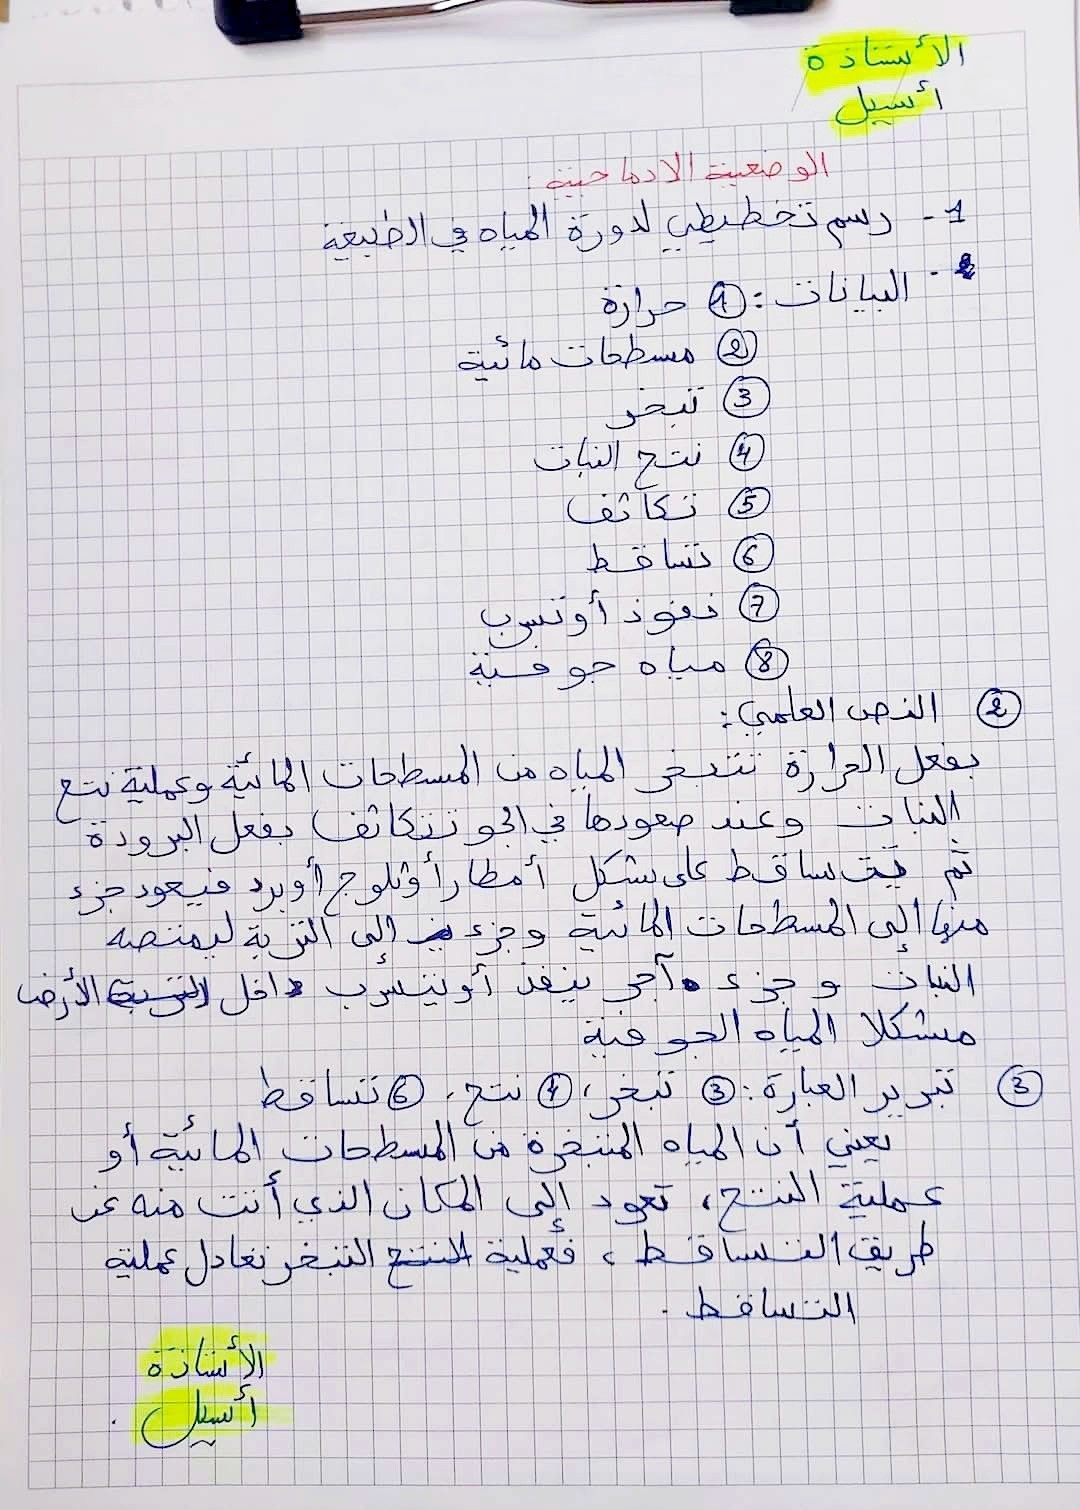 الأستاذة
أسيل
الوضعية الادماجية:
1- رسم تخطيطي لدورة المياه في الطبيعة
- البيانات: ① حرارة
② مسطحات مائية
③ تبخر
④ نتح النبات
⑤ تكاثف
⑥ تساقط
⑦ نفوذ أو تسرب
⑧ مياه جوفية
② النص العلمي:
بفعل الحرارة تتبخر المياه من المسطحات المائية وعملية نتح
النبات وعند صعودها في الجو تتكاثف بفعل البرودة
ثم تتساقط على شكل أمطار أو ثلوج أو برد فيعود جزء
منها إلى المسطحات المائية وجزء إلى التربة ليمتصه
النبات وجزء آخر ينفذ أو يتسرب داخل الأرض
مشكلا المياه الجوفية
③ تبرير العبارة: ③ تبخر، ④ نتح، ⑥ تتساقط
يعني أن المياه المتبخرة من المسطحات المائية أو
عملية النتح، تعود إلى المكان الذي أتت منه عن
طريق التساقط، فعملية التبخر تعادل عملية
التساقط.
الأستاذة
أسيل